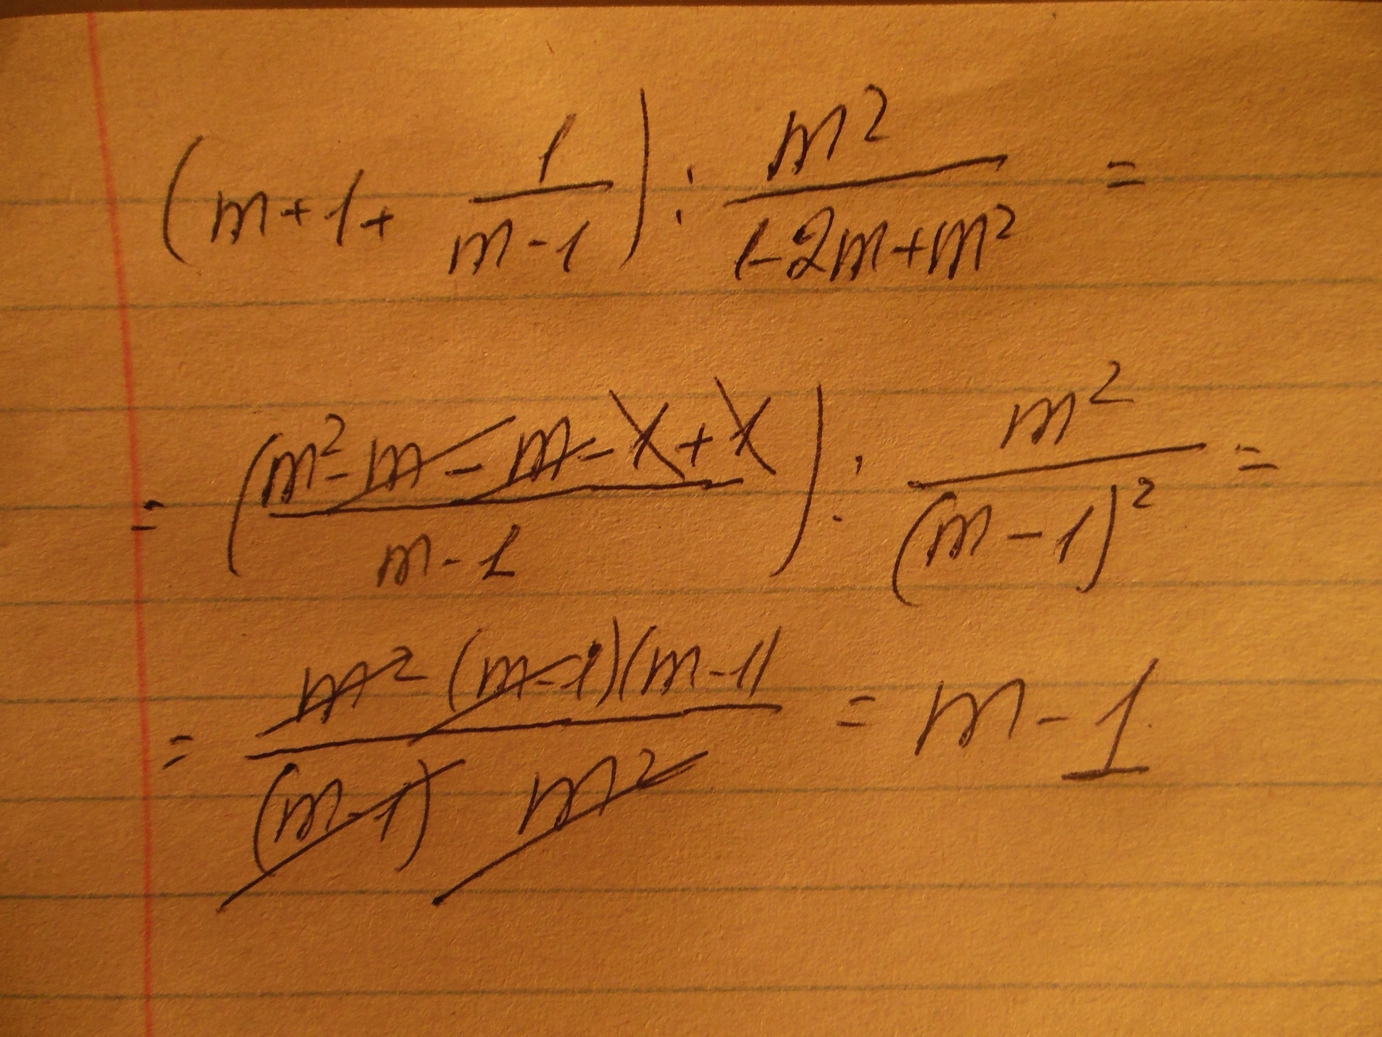 (m+1+ 1/(m-1)) : m²/(1-2m+m²) =
= ((m²-m-m-1+1)/(m-1)) : m²/(m-1)² =
= (m²(m-1)(m-1))/((m-1) m²) = m-1